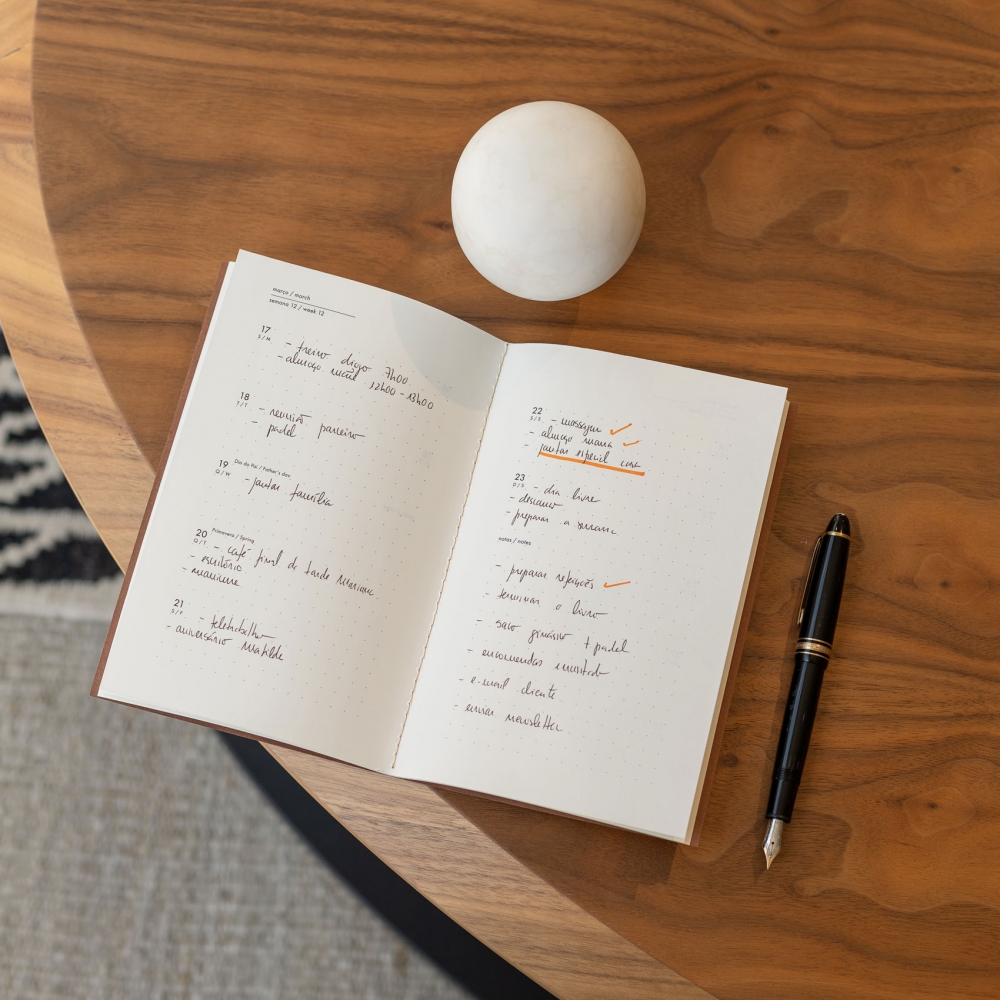 março / march
semana 12 / week 12
17
S / M
- treino diogo 7h00
- almoço mãe 12h00 - 13h00
18
T / T
- reunião parceiro
- padel
19 Dia do Pai / Father's day
Q / W
- jantar família
20 Primavera / Spring
Q / T
- café final de tarde Mariana
- escritório
- manicure
21
S / F
- teletrabalho
- aniversário Matilde
22
S / S
- massagem
- almoço mana
- jantar especial casa
23
D / S
- dia livre
- descanso
- preparar a semana
notas / notes
- preparar refeições
- terminar o livro
- saco ginásio + padel
- encomendas
- e-mail cliente
- enviar newsletter